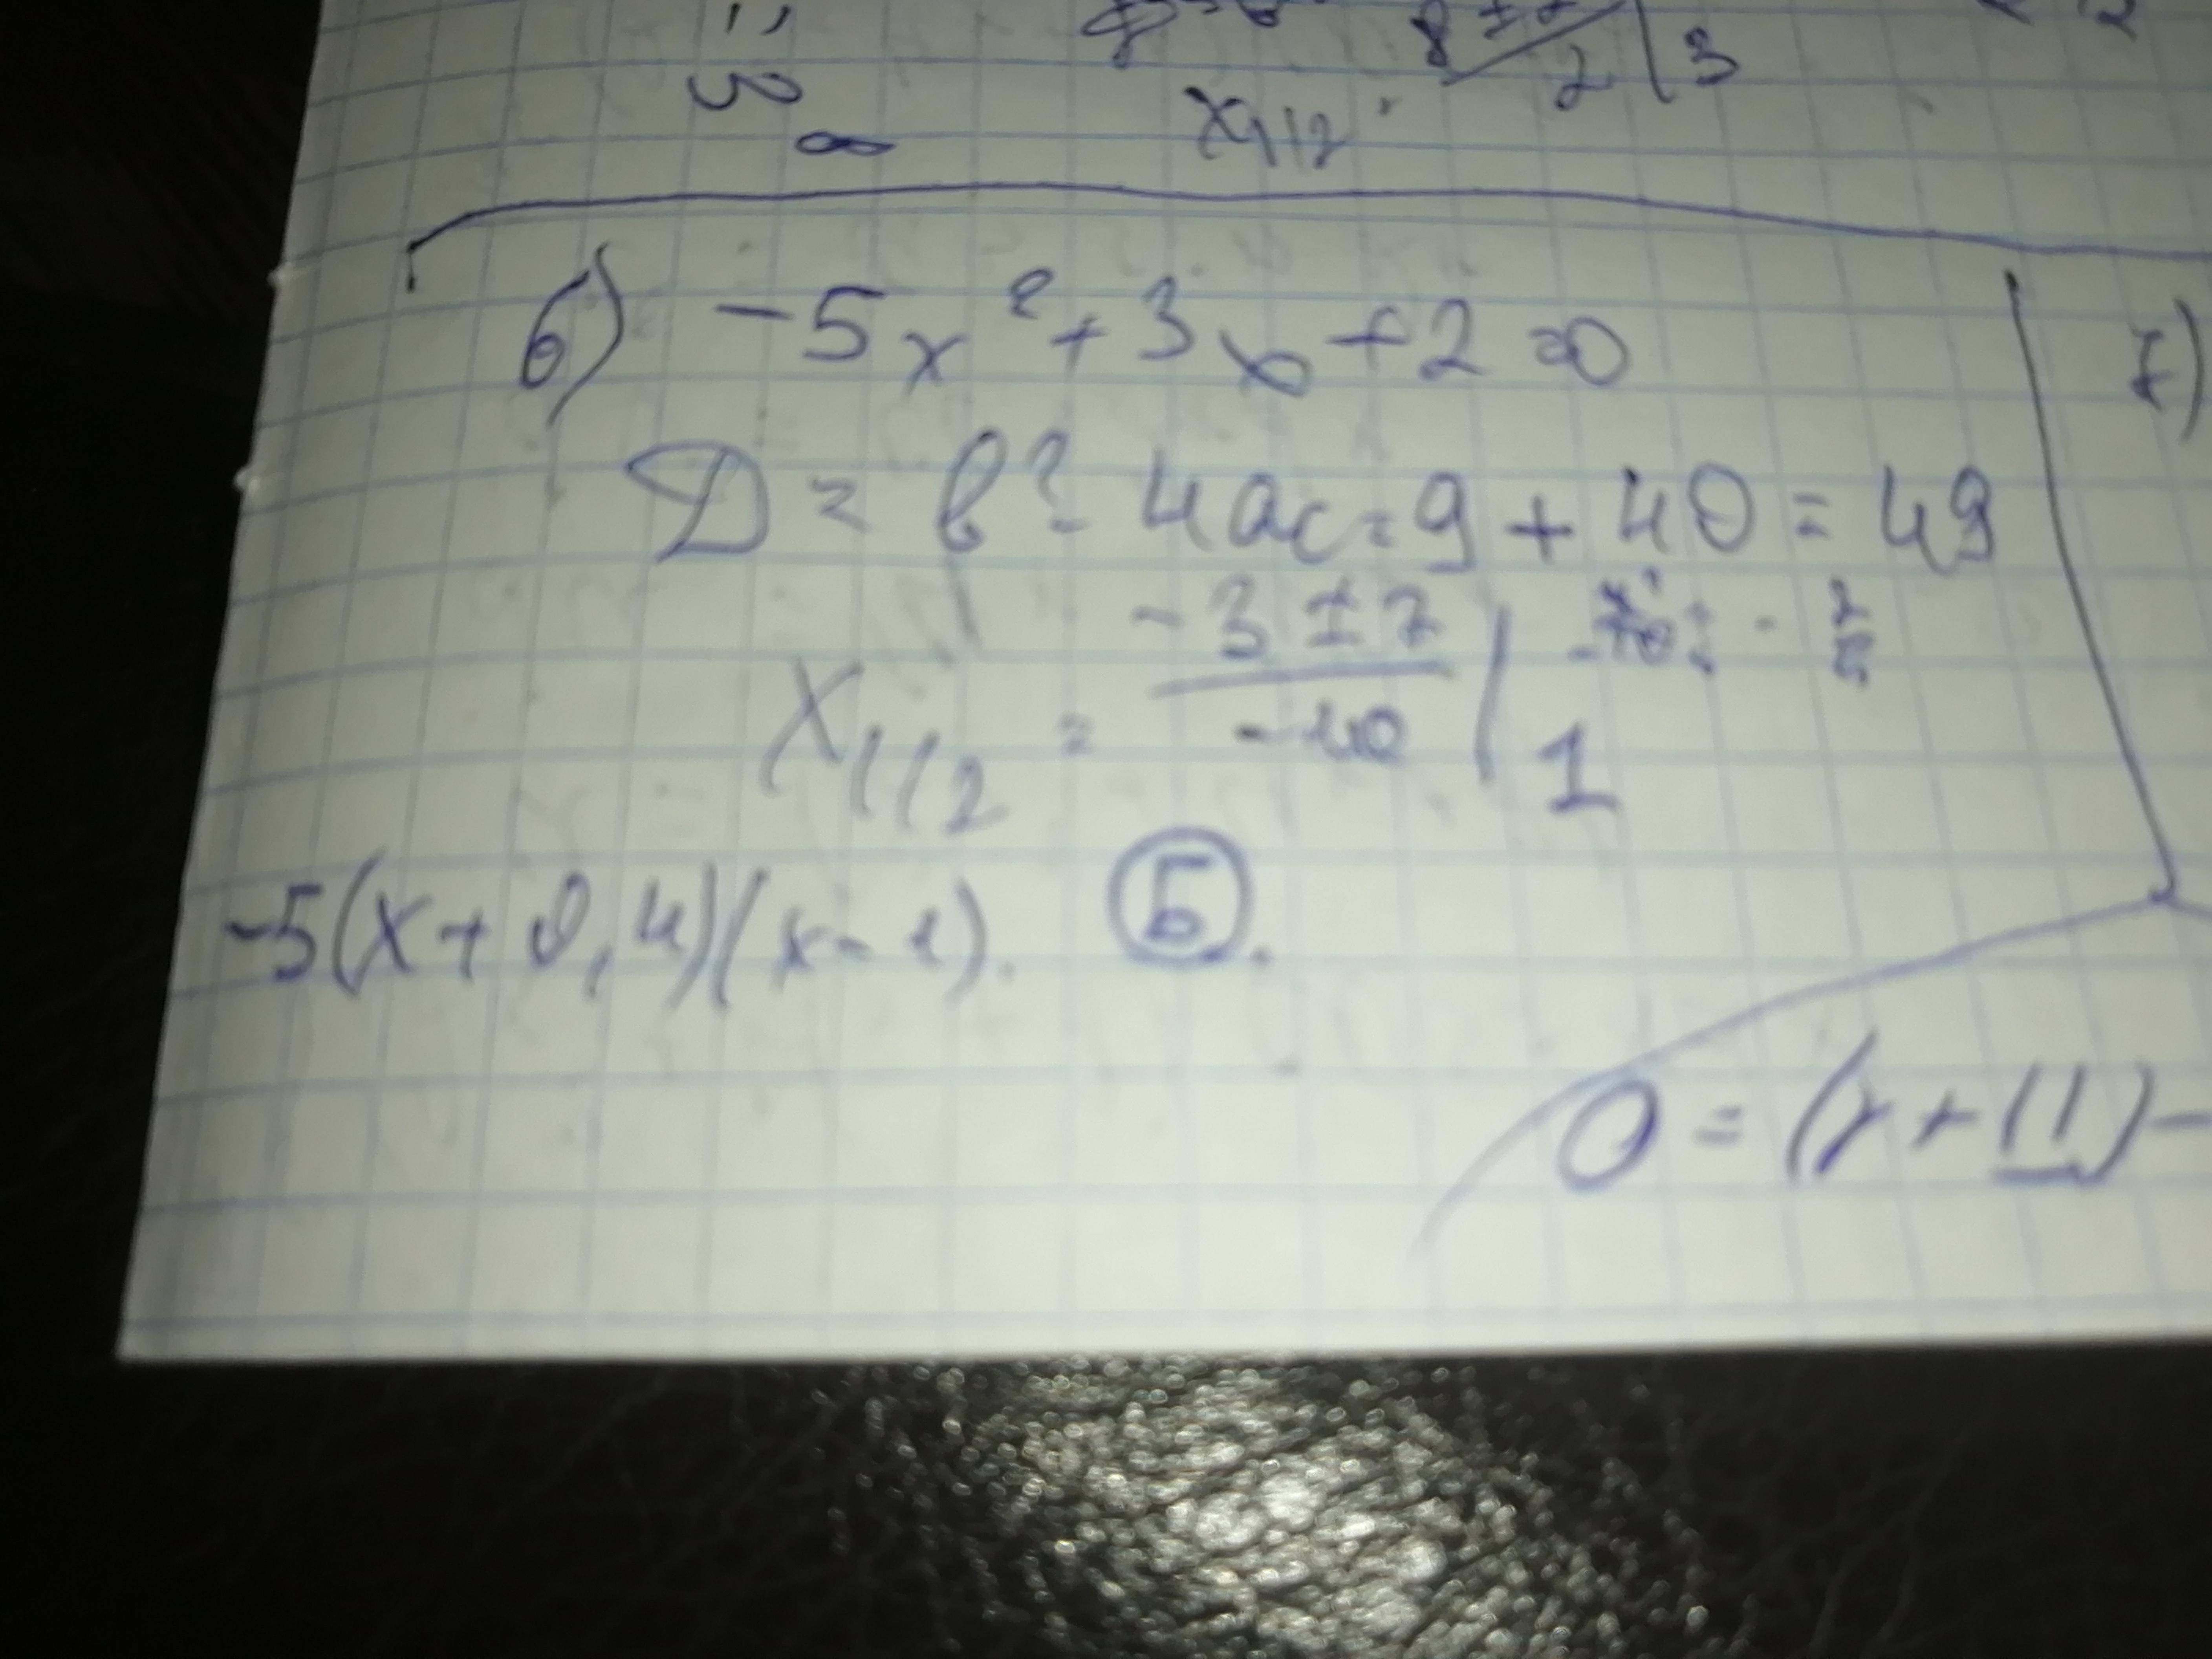 x₁,₂
6) -5x² + 3x + 2 = 0
D = b² - 4ac = 9 + 40 = 49
x₁,₂ = (-3 ± 7)/(-10) | -4/10 = -2/5
1
-5(x + 0,4)(x - 1). Б.
7)
0 = (x + 11) -